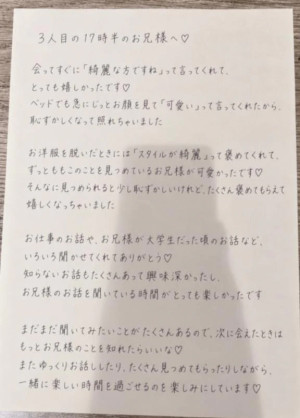 3人目の17時半のお兄様へ♡
会ってすぐに「綺麗な方ですね」って言ってくれて、
とっても嬉しかったです♡
ベッドでも急にじっとお顔を見て「可愛い」って言ってくれたから、
恥ずかしくなって照れちゃいました
お洋服を脱いだときには「スタイルが綺麗」って褒めてくれて、
ずっとももこのことを見つめているお兄様が可愛かったです♡
そんなに見つめられると少し恥ずかしいけれど、たくさん褒めてもらえて
嬉しくなっちゃいました
お仕事のお話や、お兄様が大学生だった頃のお話など、
いろいろ聞かせてくれてありがとう♡
知らないお話もたくさんあって興味深かったし、
お兄様のお話を聞いている時間がとっても楽しかったです
まだまだ聞いてみたいことがたくさんあるので、次に会えたときは
もっとお兄様のことを知れたらいいな♡
またゆっくりお話ししたり、たくさん見つめてもらったりしながら、
一緒に楽しい時間を過ごせるのを楽しみにしています♡